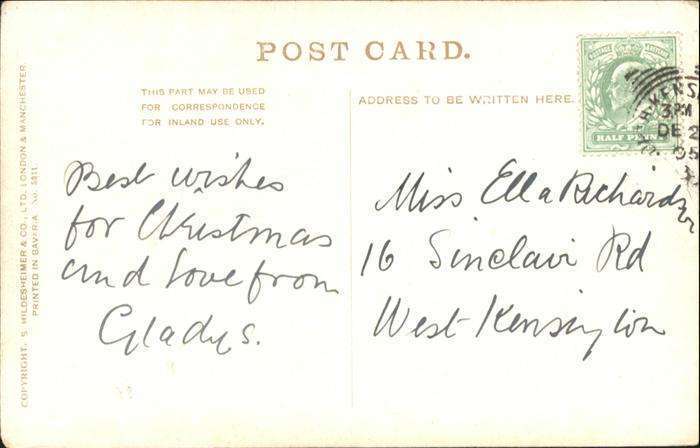 POST CARD.
THIS PART MAY BE USED
FOR CORRESPONDENCE
FOR INLAND USE ONLY.
ADDRESS TO BE WRITTEN HERE.
POSTAGE & REVENUE
HALF PENNY
KENS
3.PM
DE 2
05
Best wishes
for Christmas
and Love from
Gladys.
Miss Ella Richardson
16 Sinclair Rd
West Kensington
COPYRIGHT. S. HILDESHEIMER & CO., LTD. LONDON & MANCHESTER.
PRINTED IN BAVARIA. No. 5311